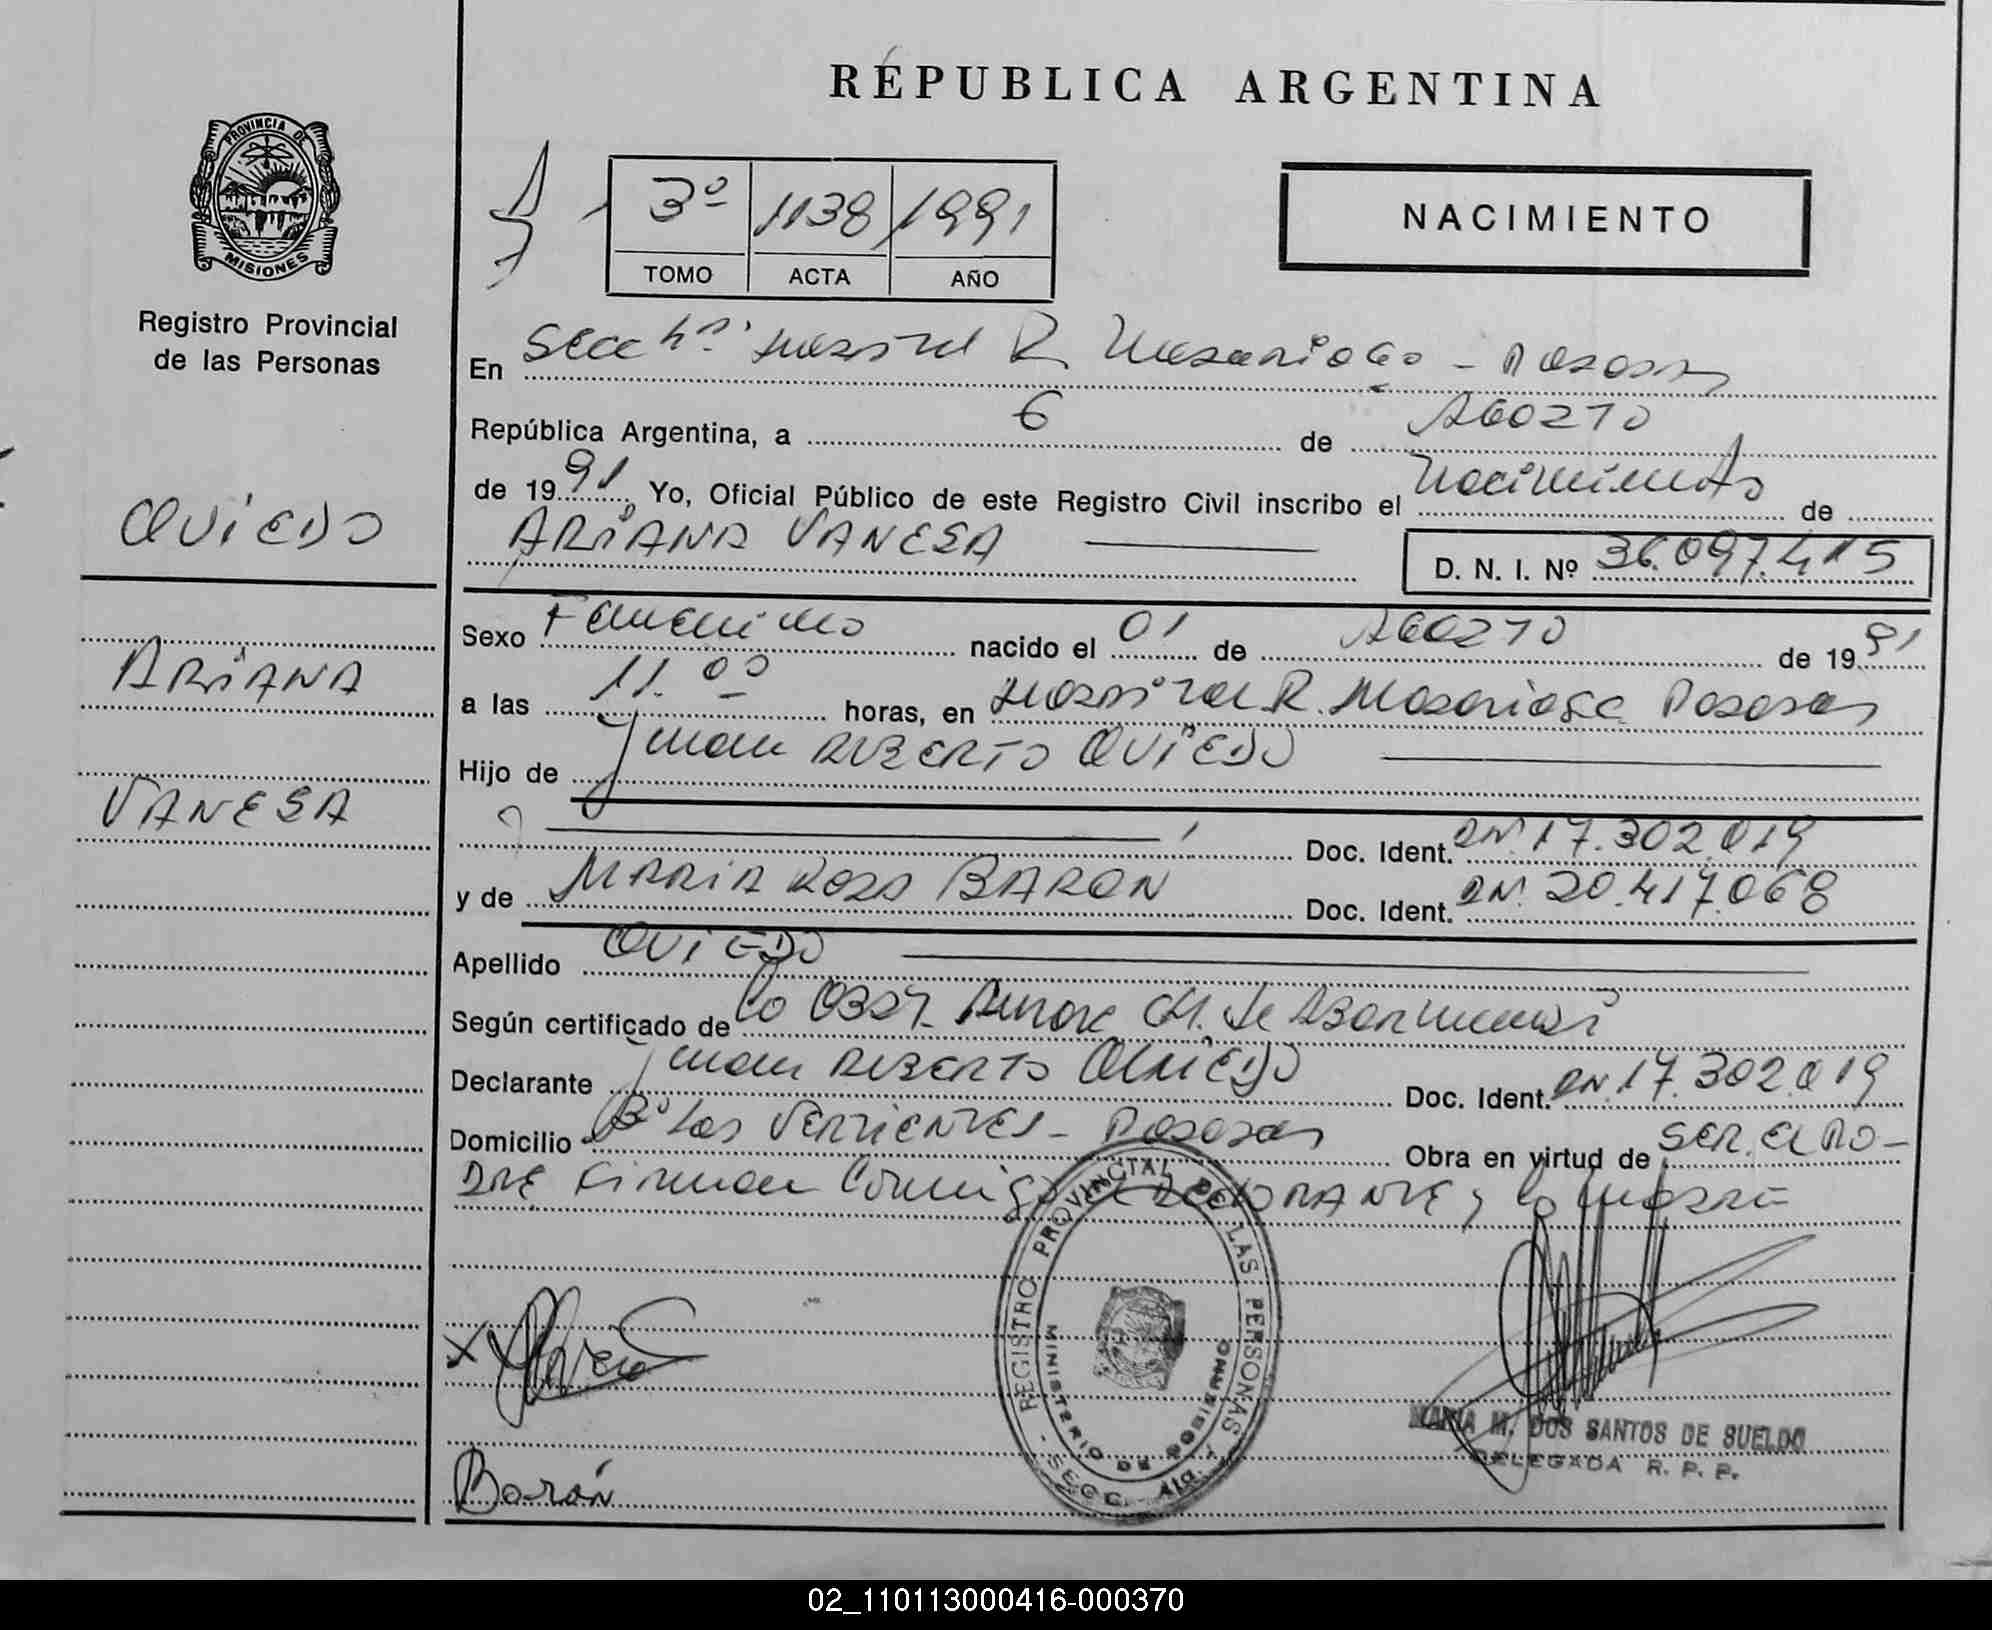 REPUBLICA ARGENTINA
PROVINCIA DE
MISIONES
Registro Provincial
de las Personas
3º 1138 1991
TOMO ACTA AÑO
NACIMIENTO
En Secc Hospital R. Madariaga - Posadas
República Argentina, a 6 de AGOSTO
de 1991 Yo, Oficial Público de este Registro Civil inscribo el Nacimiento de
ARIANA VANESA D. N. I. Nº 36.097.415
OVIEDO
ARIANA
VANESA
Sexo Femenino nacido el 01 de AGOSTO de 1991
a las 11.00 horas, en Hospital R. Madariaga Posadas
Hijo de Juan ROBERTO OVIEDO
Doc. Ident. DNI. 17.302.019
y de MARIA ROSA BARON Doc. Ident. DNI. 20.417.068
Apellido OVIEDO
Según certificado de la OBST. M. de
Declarante Juan ROBERTO OVIEDO Doc. Ident. DNI. 17.302.019
Domicilio Bº Las VERTIENTES - Posadas Obra en virtud de SER EL PA-
DRE Firman Conmigo DECLARANTE y la madre
REGISTRO PROVINCIAL DE LAS PERSONAS
MINISTERIO DE GOBIERNO
- SECC. 4ta. -
MARIA M. DOS SANTOS DE SUELDO
DELEGADA R. P. P.
Barón
02_110113000416-000370